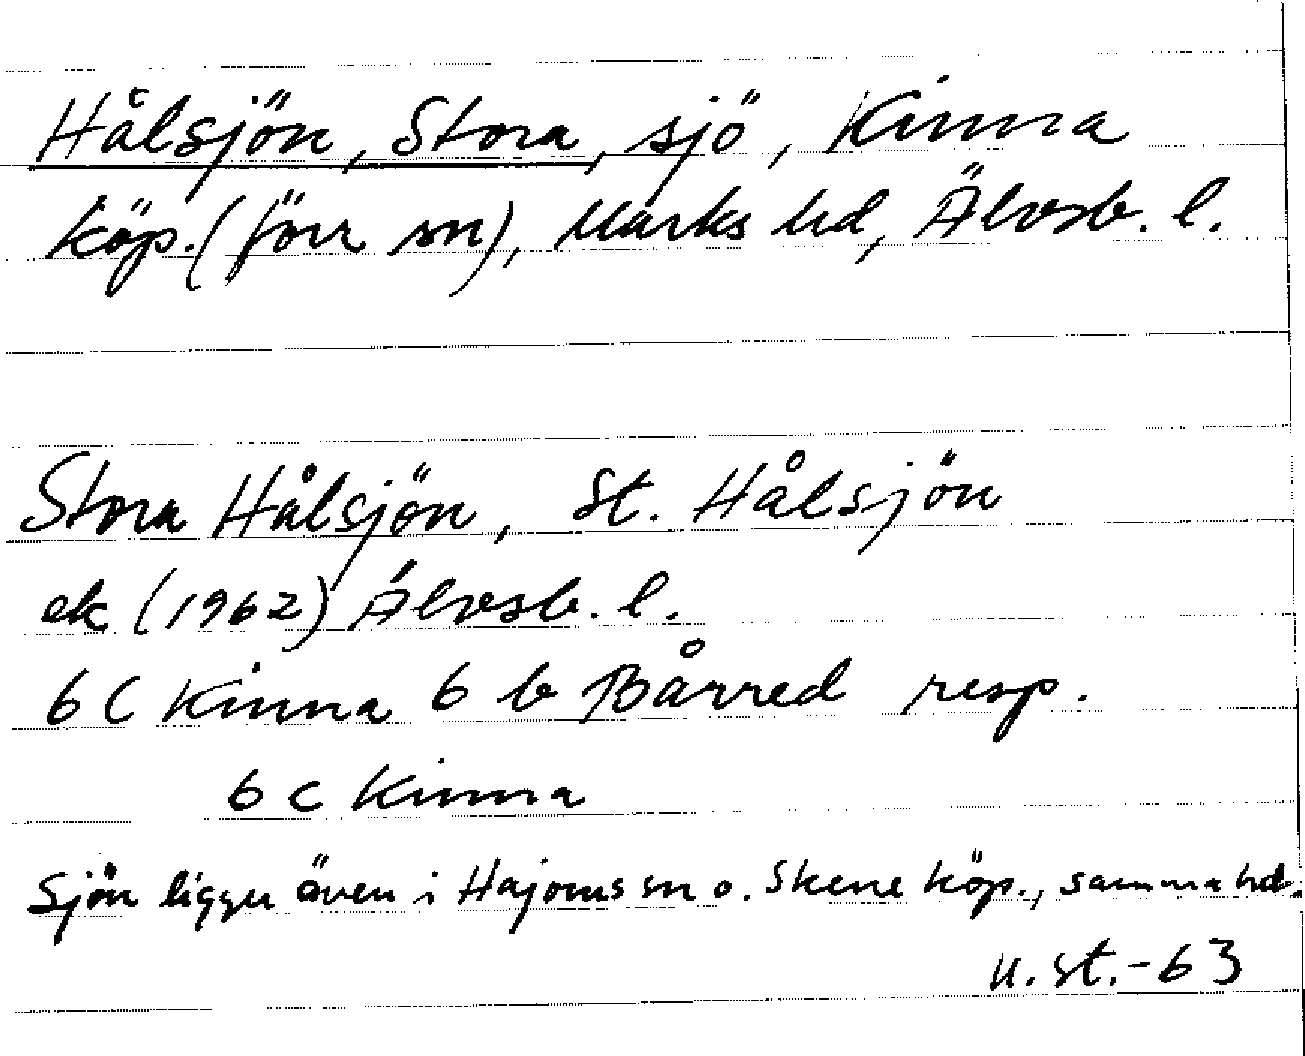 Hålsjön, Stora, sjö, Kinna
köp. (förr sn), Marks hd, Älvsb. l.
Stora Hålsjön, St. Hålsjön
ek (1962) Älvsb. l.
6 C Kinna 6 b Bårred resp.
6 c Kinna
Sjön ligger även i Hajoms sn o. Skene köp., samma hd.
u. st. - 63